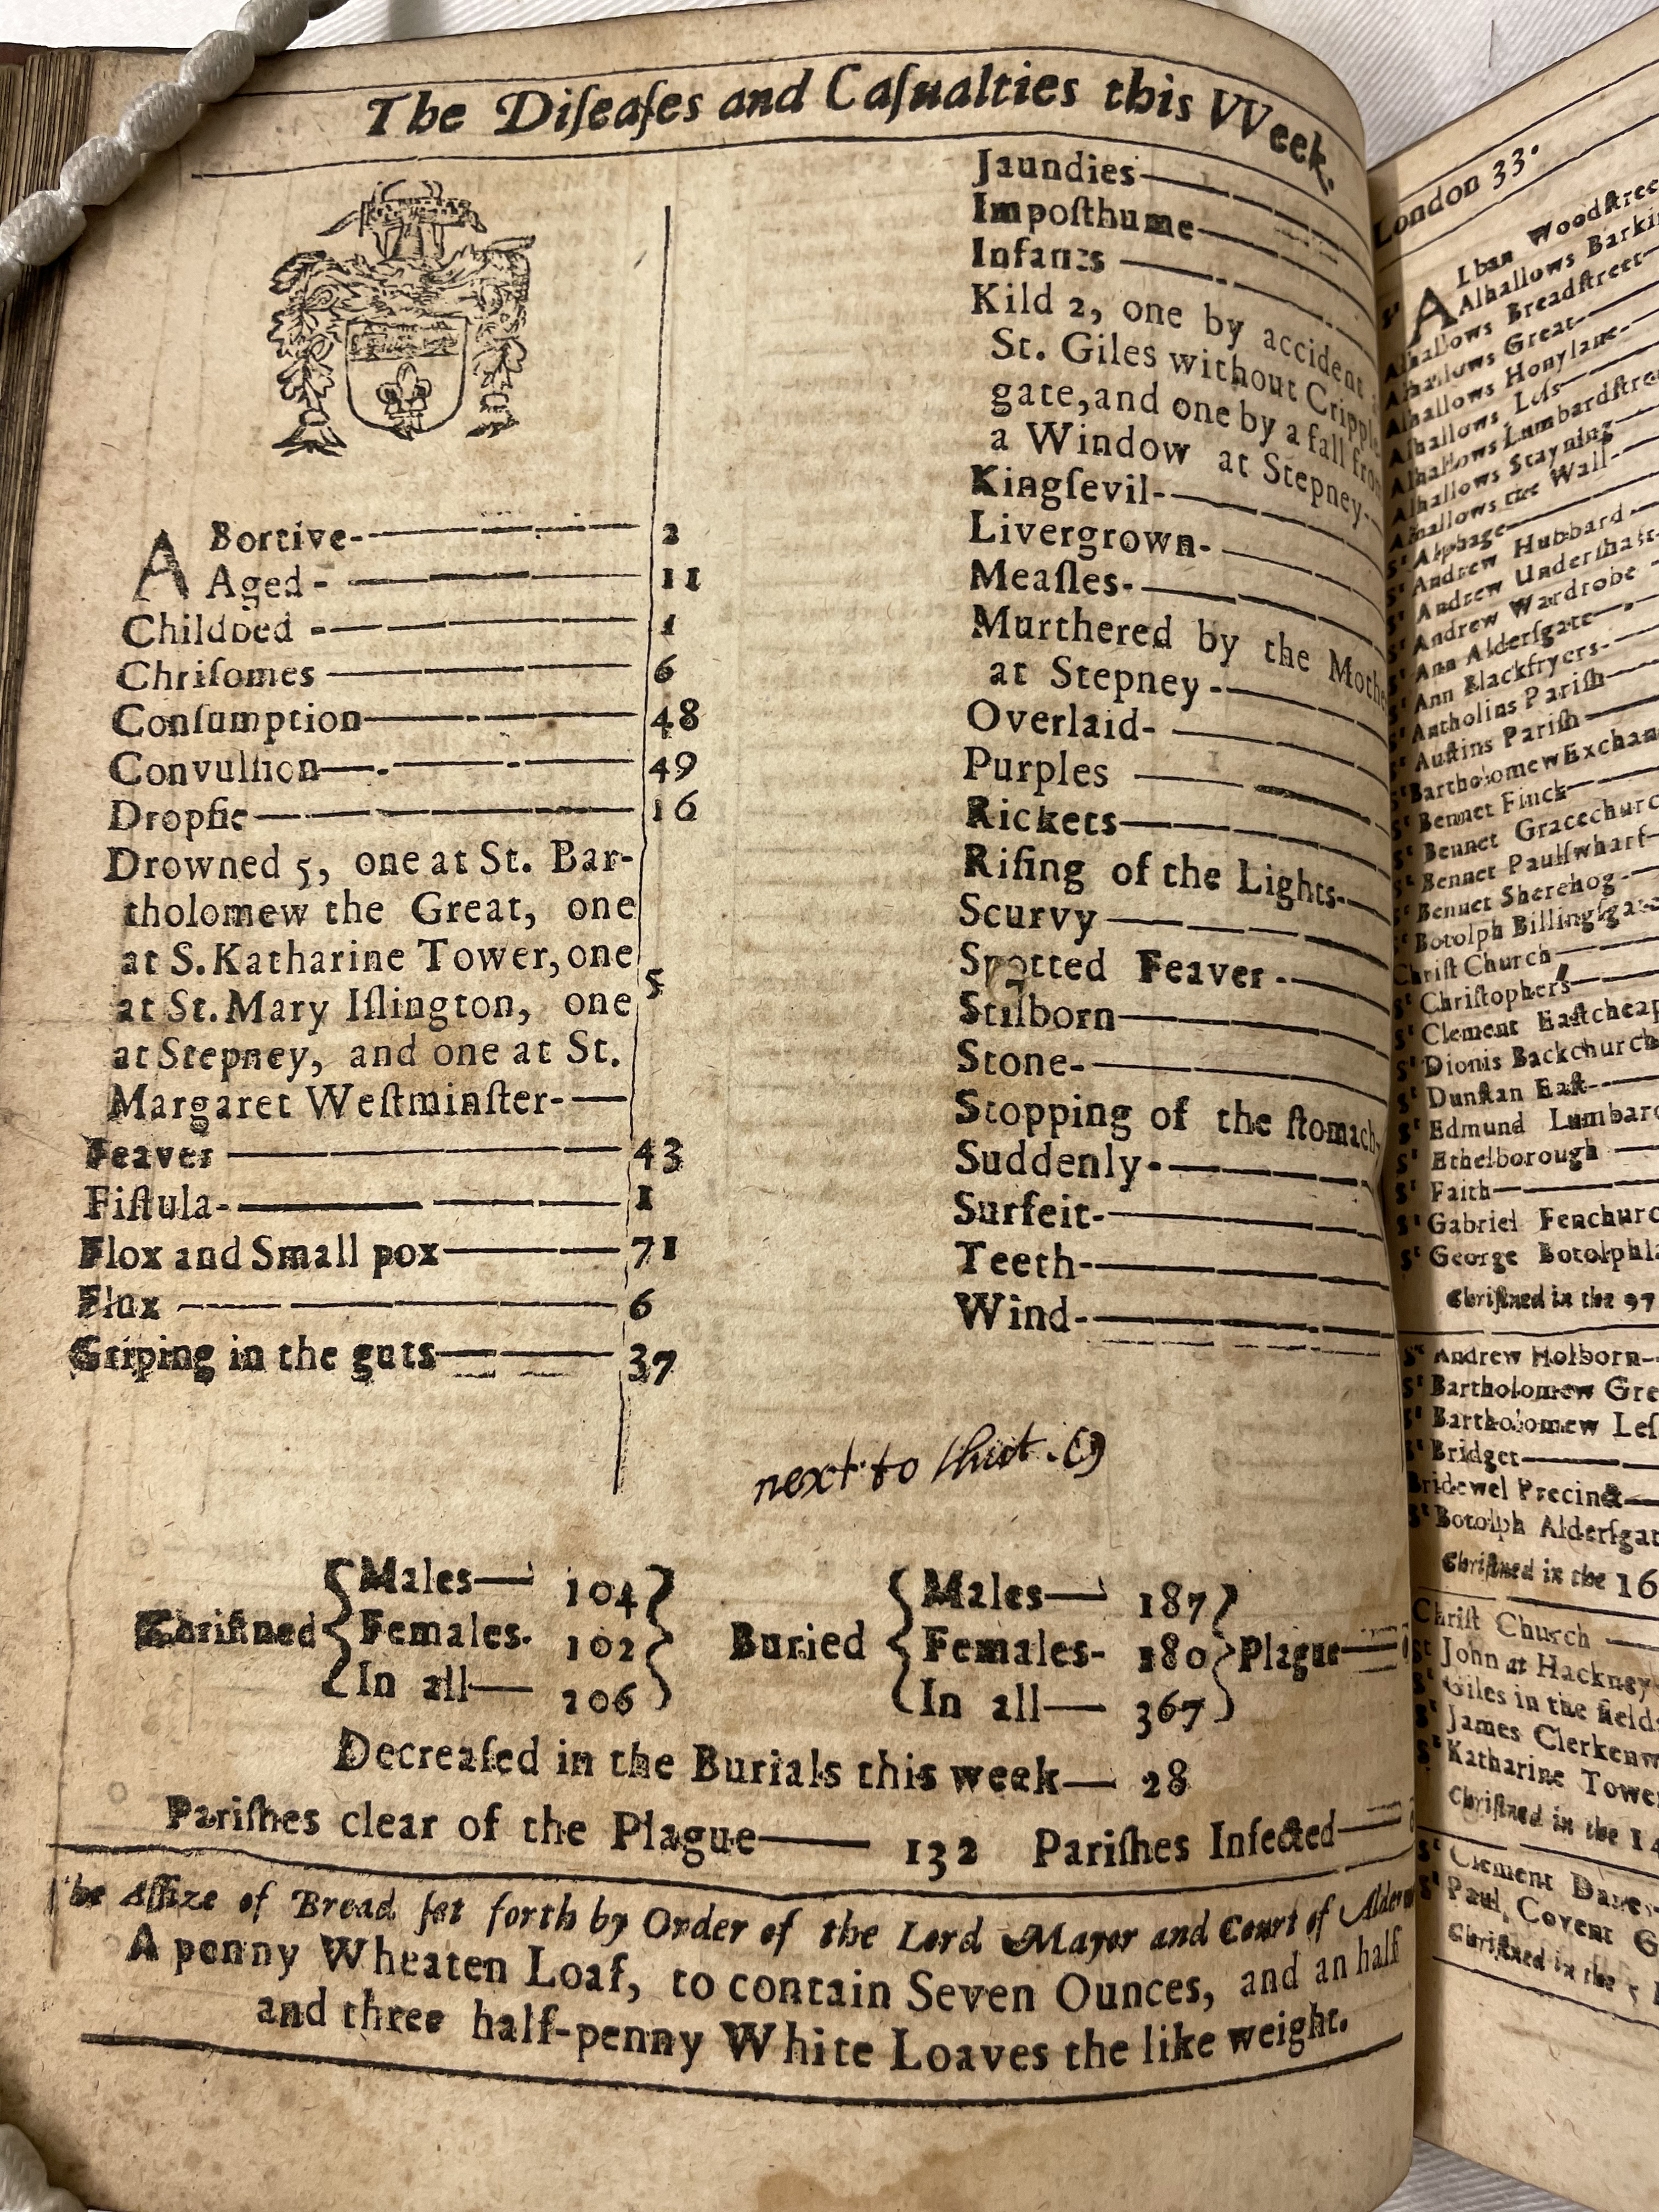 The Diſeaſes and Caſualties this VVeek.
ABortive 2
Aged 11
Childbed 1
Chriſomes 6
Conſumption 48
Convulſion 49
Dropſie 16
Drowned 5, one at St. Bar-
tholomew the Great, one
at S. Katharine Tower, one
at St. Mary Iſlington, one
at Stepney, and one at St.
Margaret Weſtminſter- 5
Feaver 43
Fiſtula 1
Flox and Small pox 71
Flux 6
Griping in the guts 37
Jaundies
Impoſthume
Infants
Kild 2, one by accident
St. Giles without Crippl
gate, and one by a fall fro
a Window at Stepney
Kingſevil
Livergrown
Meaſles
Murthered by the Mothe
at Stepney
Overlaid
Purples
Rickets
Riſing of the Lights
Scurvy
Spotted Feaver
Stilborn
Stone
Stopping of the ſtomach
Suddenly
Surfeit
Teeth
Wind
next to thiet. (9)
Chriſtned Males 104 Females 102 In all 206
Buried Males 187 Females 180 In all 367 Plague
Decreaſed in the Burials this week— 28
Pariſhes clear of the Plague— 132 Pariſhes Infected
The Aſſize of Bread ſet forth by Order of the Lord Mayor and Court of Alderm
A penny Wheaten Loaf, to contain Seven Ounces, and an half
and three half-penny White Loaves the like weight.
London 33.
St ALban Woodſtree
Alhallows Barki
Alhallows Breadſtreet
Alhallows Great
Alhallows Honylane
Alhallows Leſs
Alhallows Lumbardſtre
Alhallows Stayning
Alhallows the Wall
St Alphage
St Andrew Hubbard
St Andrew Underſhaft
St Andrew Wardrobe
St Ann Alderſgate
St Ann Blackfryers
St Antholins Pariſh
St Auſtins Pariſh
St Bartholomew Exchan
St Bennet Finck
St Bennet Gracechurc
St Bennet Paulſwharf
St Bennet Sherehog
St Botolph Billingſgate
Chriſt Church
St Chriſtophers
St Clement Eaſtcheap
St Dionis Backchurch
St Dunſtan Eaſt
St Edmund Lumbard
St Ethelborough
St Faith
St Gabriel Fenchurc
St George Botolphla
Chriſtned in the 97
St Andrew Holborn
St Bartholomew Gre
St Bartholomew Leſ
St Bridget
Bridewel Precinct
St Botolph Alderſgat
Chriſtned in the 16
Chriſt Church
St John at Hackney
St Giles in the field
St James Clerkenw
St Katharine Towe
Chriſtned in the 14
St Clement Danes
St Paul, Covent G
Chriſtned in the 5